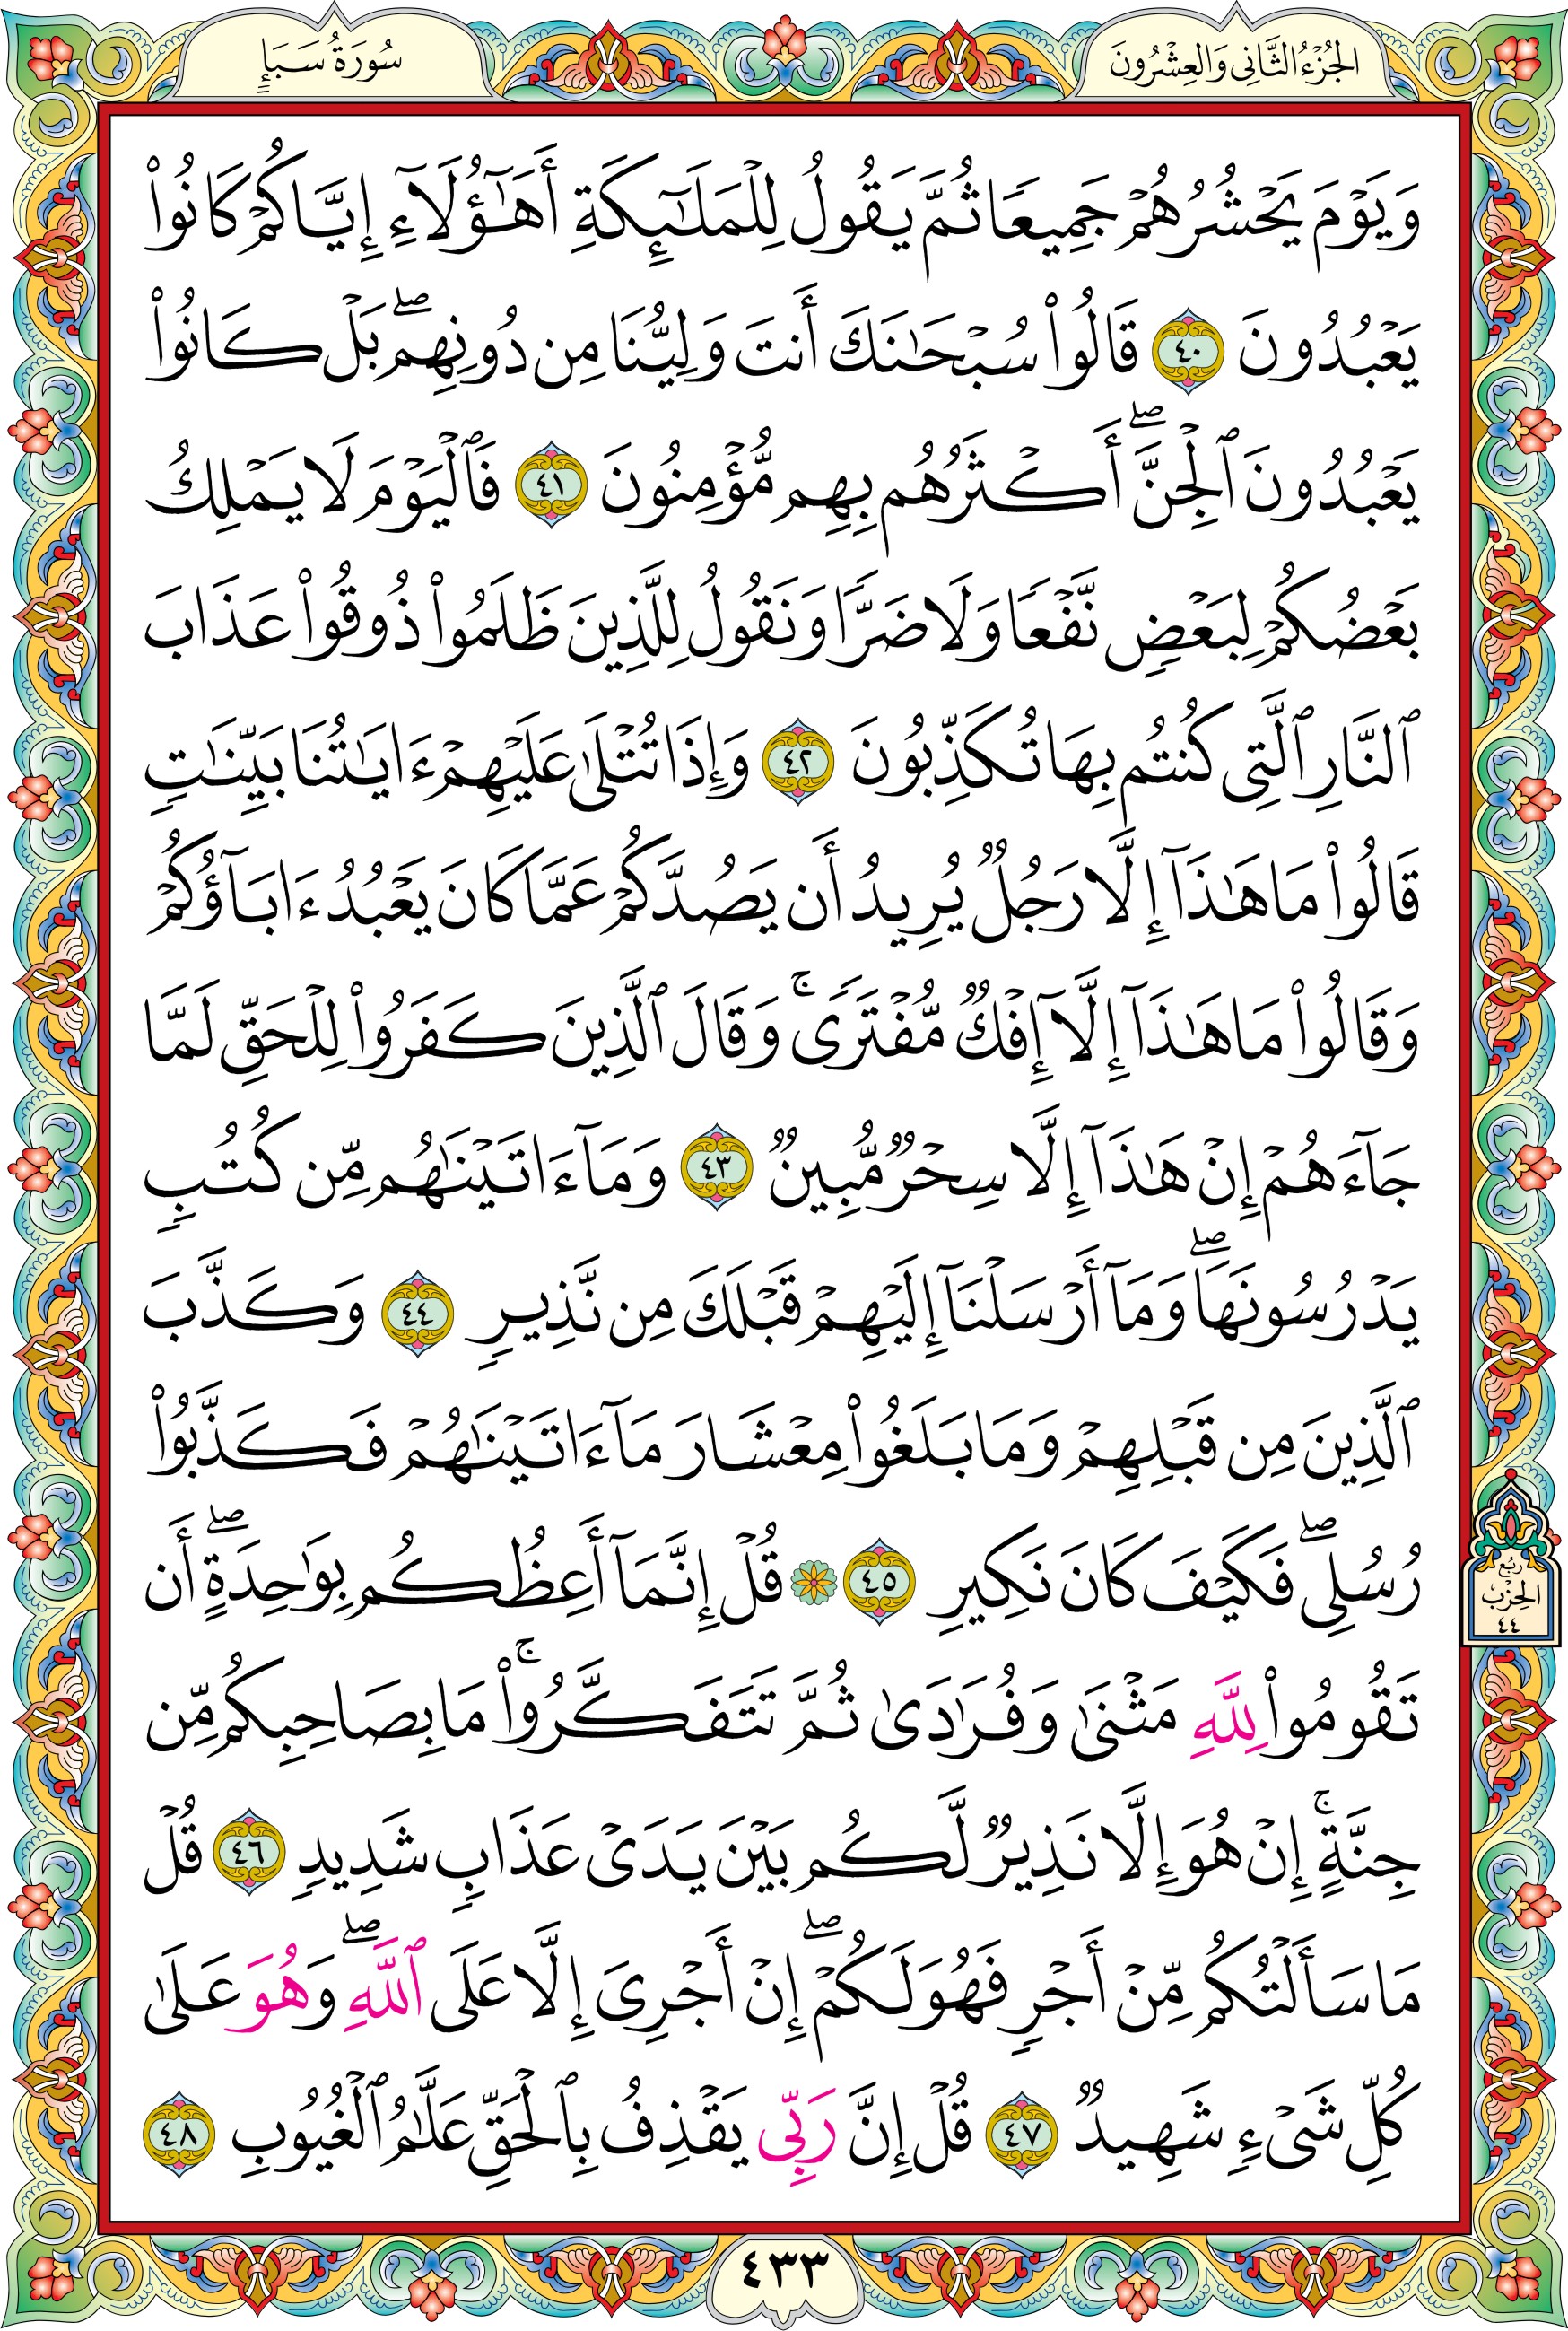 الجُزْءُ الثَّانِي وَالعِشْرُونَ
سُورَةُ سَبَإٍ
وَيَوْمَ يَحْشُرُهُمْ جَمِيعًا ثُمَّ يَقُولُ لِلْمَلَٰٓئِكَةِ أَهَٰٓؤُلَآءِ إِيَّاكُمْ كَانُوا۟
يَعْبُدُونَ ٤٠ قَالُوا۟ سُبْحَٰنَكَ أَنتَ وَلِيُّنَا مِن دُونِهِم ۖ بَلْ كَانُوا۟
يَعْبُدُونَ ٱلْجِنَّ ۖ أَكْثَرُهُم بِهِم مُّؤْمِنُونَ ٤١ فَٱلْيَوْمَ لَا يَمْلِكُ
بَعْضُكُمْ لِبَعْضٍ نَّفْعًا وَلَا ضَرًّا وَنَقُولُ لِلَّذِينَ ظَلَمُوا۟ ذُوقُوا۟ عَذَابَ
ٱلنَّارِ ٱلَّتِى كُنتُم بِهَا تُكَذِّبُونَ ٤٢ وَإِذَا تُتْلَىٰ عَلَيْهِمْ ءَايَٰتُنَا بَيِّنَٰتٍ
قَالُوا۟ مَا هَٰذَآ إِلَّا رَجُلٌ يُرِيدُ أَن يَصُدَّكُمْ عَمَّا كَانَ يَعْبُدُ ءَابَآؤُكُمْ
وَقَالُوا۟ مَا هَٰذَآ إِلَّآ إِفْكٌ مُّفْتَرًى ۚ وَقَالَ ٱلَّذِينَ كَفَرُوا۟ لِلْحَقِّ لَمَّا
جَآءَهُمْ إِنْ هَٰذَآ إِلَّا سِحْرٌ مُّبِينٌ ٤٣ وَمَآ ءَاتَيْنَٰهُم مِّن كُتُبٍ
يَدْرُسُونَهَا ۖ وَمَآ أَرْسَلْنَآ إِلَيْهِمْ قَبْلَكَ مِن نَّذِيرٍ ٤٤ وَكَذَّبَ
ٱلَّذِينَ مِن قَبْلِهِمْ وَمَا بَلَغُوا۟ مِعْشَارَ مَآ ءَاتَيْنَٰهُمْ فَكَذَّبُوا۟
رُسُلِى ۖ فَكَيْفَ كَانَ نَكِيرِ ٤٥ ۞ قُلْ إِنَّمَآ أَعِظُكُم بِوَٰحِدَةٍ ۖ أَن
تَقُومُوا۟ لِلَّهِ مَثْنَىٰ وَفُرَٰدَىٰ ثُمَّ تَتَفَكَّرُوا۟ ۚ مَا بِصَاحِبِكُم مِّن
جِنَّةٍ ۚ إِنْ هُوَ إِلَّا نَذِيرٌ لَّكُم بَيْنَ يَدَىْ عَذَابٍ شَدِيدٍ ٤٦ قُلْ
مَا سَأَلْتُكُم مِّنْ أَجْرٍ فَهُوَ لَكُمْ ۖ إِنْ أَجْرِىَ إِلَّا عَلَى ٱللَّهِ ۖ وَهُوَ عَلَىٰ
كُلِّ شَىْءٍ شَهِيدٌ ٤٧ قُلْ إِنَّ رَبِّى يَقْذِفُ بِٱلْحَقِّ عَلَّٰمُ ٱلْغُيُوبِ ٤٨
رُبُع
الحِزْب
٤٤
٤٣٣